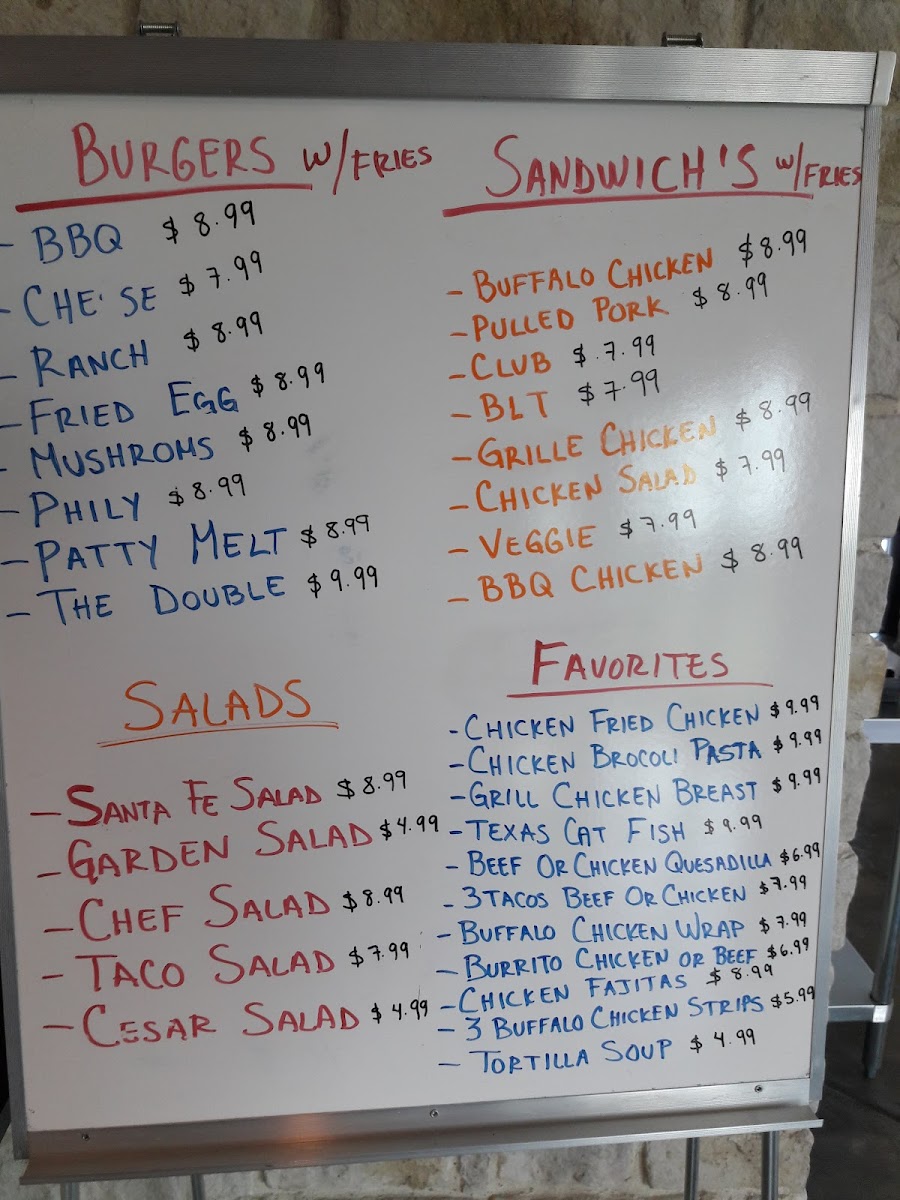 BURGERS W/FRIES
- BBQ $8.99
- CHE'SE $7.99
- RANCH $8.99
- FRIED EGG $8.99
- MUSHROMS $8.99
- PHILY $8.99
- PATTY MELT $8.99
- THE DOUBLE $9.99
SANDWICH'S W/FRIES
- BUFFALO CHICKEN $8.99
- PULLED PORK $8.99
- CLUB $.7.99
- BLT $7.99
- GRILLE CHICKEN $8.99
- CHICKEN SALAD $7.99
- VEGGIE $7.99
- BBQ CHICKEN $8.99
SALADS
- SANTA FE SALAD $8.99
- GARDEN SALAD $4.99
- CHEF SALAD $8.99
- TACO SALAD $7.99
- CESAR SALAD $4.99
FAVORITES
- CHICKEN FRIED CHICKEN $9.99
- CHICKEN BROCOLI PASTA $9.99
- GRILL CHICKEN BREAST $9.99
- TEXAS CAT FISH $9.99
- BEEF OR CHICKEN QUESADILLA $6.99
- 3 TACOS BEEF OR CHICKEN $7.99
- BUFFALO CHICKEN WRAP $7.99
- BURRITO CHICKEN OR BEEF $6.99
- CHICKEN FAJITAS $8.99
- 3 BUFFALO CHICKEN STRIPS $5.99
- TORTILLA SOUP $4.99